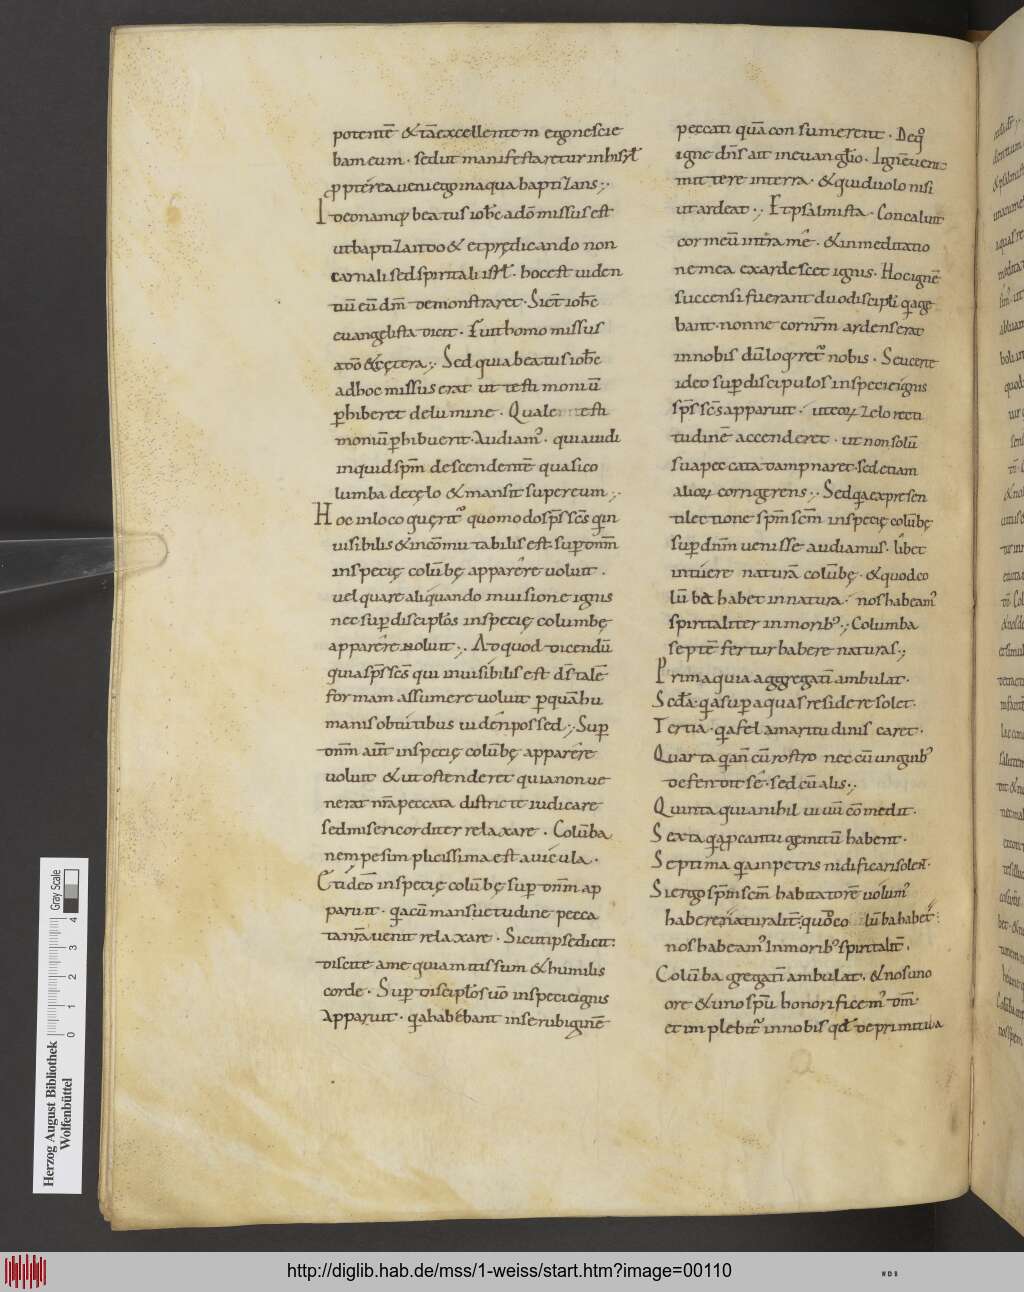 potentē &tāexcellentem egonescie
bam eum · sedut manifestaretur in hisrł
pptérea ueni ego in aqua baptizans ;
Ideo namq; beatus ioħc adō missus est
ut baptizando & et prędicando non
carnali sed spiritali isrł · hoc est uiden
tiū eū dm̄ demonstraret · Sicut ioħc
euangelista dicit · Fuit homo missus
adō &cętera ; Sed quia beatus ioħc
ad hoc missus erat ut testimoniū
phiberet de lumine · Quale testi
moniū phibuerit · Audiam᾽ · quia uidi
inquid spm̄ descendentē quasi co
lumba decęlo & mansit super eum ;
Hoc in loco quęrit᾽ quomodo sps̄ scs̄ qin
uisibilis & incōmutabilis est · sup dnm̄
in specię colūbę apparére uoluit ·
uel quare aliquando in uisione ignis
nec sup discipłos in specię columbę
apparére noluit ; Ad quod dicendū
quia sps̄ scs̄ qui inuisibilis est ds̄ talē
formam assumere uoluit p quā hu
manis obtutibus uidéri possed ; Sup
dnm̄ aūt in specię colūbę apparére
uoluit & ut ostenderet quia non ue
nerat nr̄a peccata districte iudicare
sed misericorditer relaxare · Colūba
nempe simplicissima est auicula ·
Et ideo in specię colūbę sup dnm̄ ap
paruit · qa cū mansuetudine pecca
ta nr̄a uenit relaxare · Sicut ipse dicit :
discite a me quia mitis sum & humilis
corde · Sup discipłos uō in specie ignis
Apparuit · qa habébant in se rubiginē
peccati quā consumerent · De q᾽
igne dn̄s ait in euangłio · Ignē ueni
mittere in terra · & quid uolo nisi
ut ardeat ; Et psalmista · Concaluit
cor meū intra me · & in meditatio
ne mea exardescet ignis · Hoc ignē
succensi fuerant duo discipli q age
bant · nonne cor nr̄m ardens erat
in nobis dū loq̄ret᾽ nobis · Seu certe
ideo sup discipulos in specie ignis
sps̄ scs̄ apparuit · ut eoꝝ zelo recti
tudinē accenderet · ut non solū
sua peccata dampnaret · sed etiam
alioꝝ corrigerens ; Sed qa expresen
ti lectione spm̄ scm̄ in specię colūbę
sup dnm̄ uenisse audiamus · libet
intúere naturā colūbę · & quod co
lūba habet in natura · nos habeam᾽
spiritaliter in morib᾽ ; Columba
septē fertur habere naturas ;
Prima quia aggregati ambulat ·
Scda · qa sup aquas residere solet ·
Tertia · qa fel amaritudinis caret ·
Quarta qa n̄ cū rostro nec cū unguib᾽
defendit se · sed cū alis ·
Quinta quia nihil uiuū cōmedit ·
Sexta qa p cantu gemitū habent ·
Septima qa in petris nidificari solent ·
Si ergo spm̄ scm̄ habitatorē uolum᾽
habere naturalit : quod co lūba habet
nos habeam᾽ in morib᾽ spiritalit̄ ·
Colūba gregati ambulat · & nos uno
ore & uno spū honorificem᾽ dm̄ ·
et impleibit᾽ in nobis qđ de primitiua
Herzog August Bibliothek
Wolfenbüttel
Gray Scale
0 1 2 3 4
http://diglib.hab.de/mss/1-weiss/start.htm?image=00110